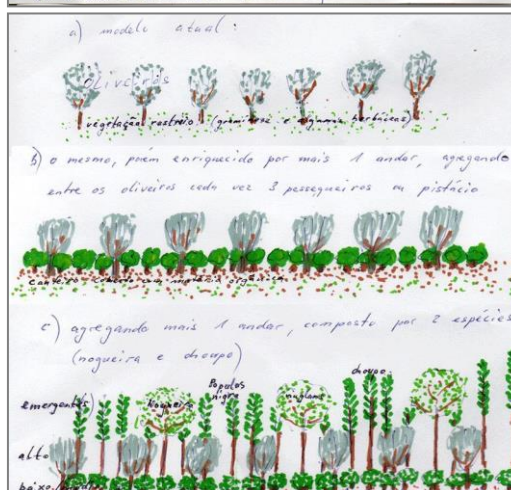 a) modelo atual:
Oliveiros
vegetação rastreio (gramíneae e algumas herbáceas)
b) o mesmo, porém enriquecido por mais 1 andar, agregando
entre os oliveiros cada vez 3 pessegueiros ou pistácio
canteiro coberto com matéria orgânica
c) agregando mais 1 andar, composto por 2 espécies
(nogueira e choupo)
emergentes)
nogueira
Populos
nigre
choupo
alto
baixo